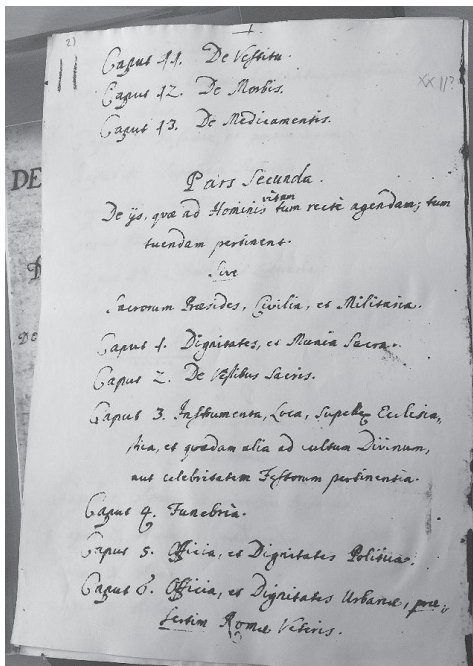 2)
Caput 11. De Vestitu.
XXII?
Caput 12. De Morbis.
Caput 13. De Medicamentis.
DE
Pars Secunda.
vitam
De ijs, quæ ad Hominis tum rectè agendam; tum
tuendam pertinent.
Sive
Sacrorum Præsides, Civilia, et Militaria.
Caput 1. Dignitates, et Munia Sacra.
Caput 2. De Vestibus Sacris.
Caput 3. Instrumenta, Loca, Supellex Ecclesia,,
stica, et quædam alia ad cultum Divinum,
aut celebritatem Festorum pertinentia.
Caput 4. Funebria.
Caput 5. Officia, et Dignitates Politicæ.
Caput 6. Officia, et Dignitates Urbanæ, præ,,
sertim Romæ Veteris.